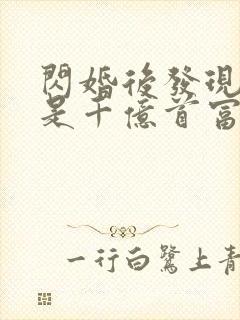 閃婚後發現
是千億首富
一行白鷺上青